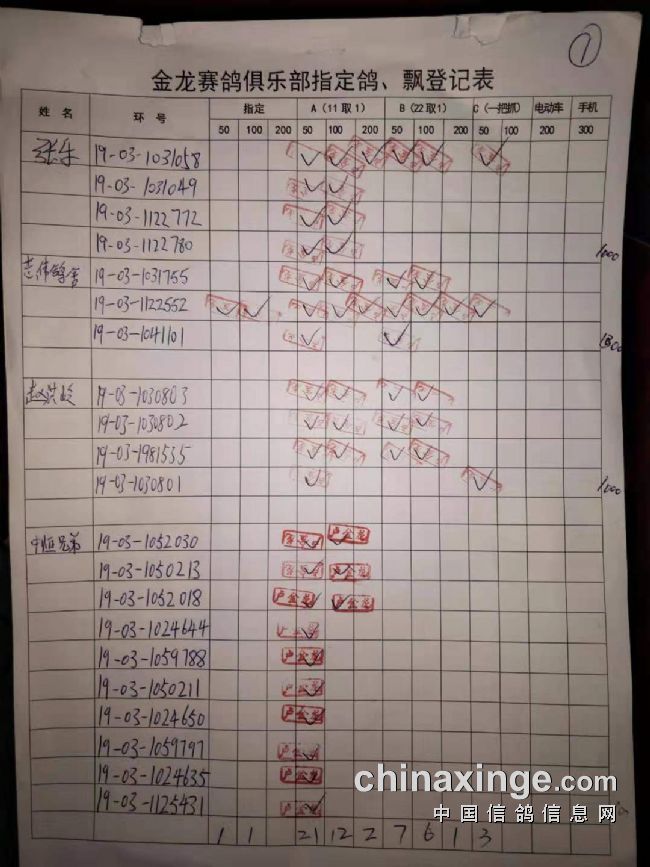 ①
金龙赛鸽俱乐部指定鸽、飘登记表
姓 名 环 号 指定 A（11取1） B（22取1） C（一把抓） 电动车 手机
50 100 200 50 100 200 50 100 200 50 100 200 300
张乐 19-03-1031058
19-03-1031049
19-03-1122772
19-03-1122780 1000
19-03-1031755
19-03-1122552
19-03-1041101
19-03-1030803
19-03-1030802
19-03-1981535
19-03-1030801 1000
中恒兄弟 19-03-1052030 卢金龙
19-03-1050213 卢金龙
19-03-1052018 卢金龙 卢金龙
19-03-1024644 卢金龙
19-03-1059788 卢金龙
19-03-1050211 卢金龙
19-03-1024650 卢金龙
19-03-1059797 卢金龙
19-03-1024635 卢金龙
19-03-1125431 卢金龙
1 1 21 12 2 7 6 1 3
chinaxinge.com
中国信鸽信息网